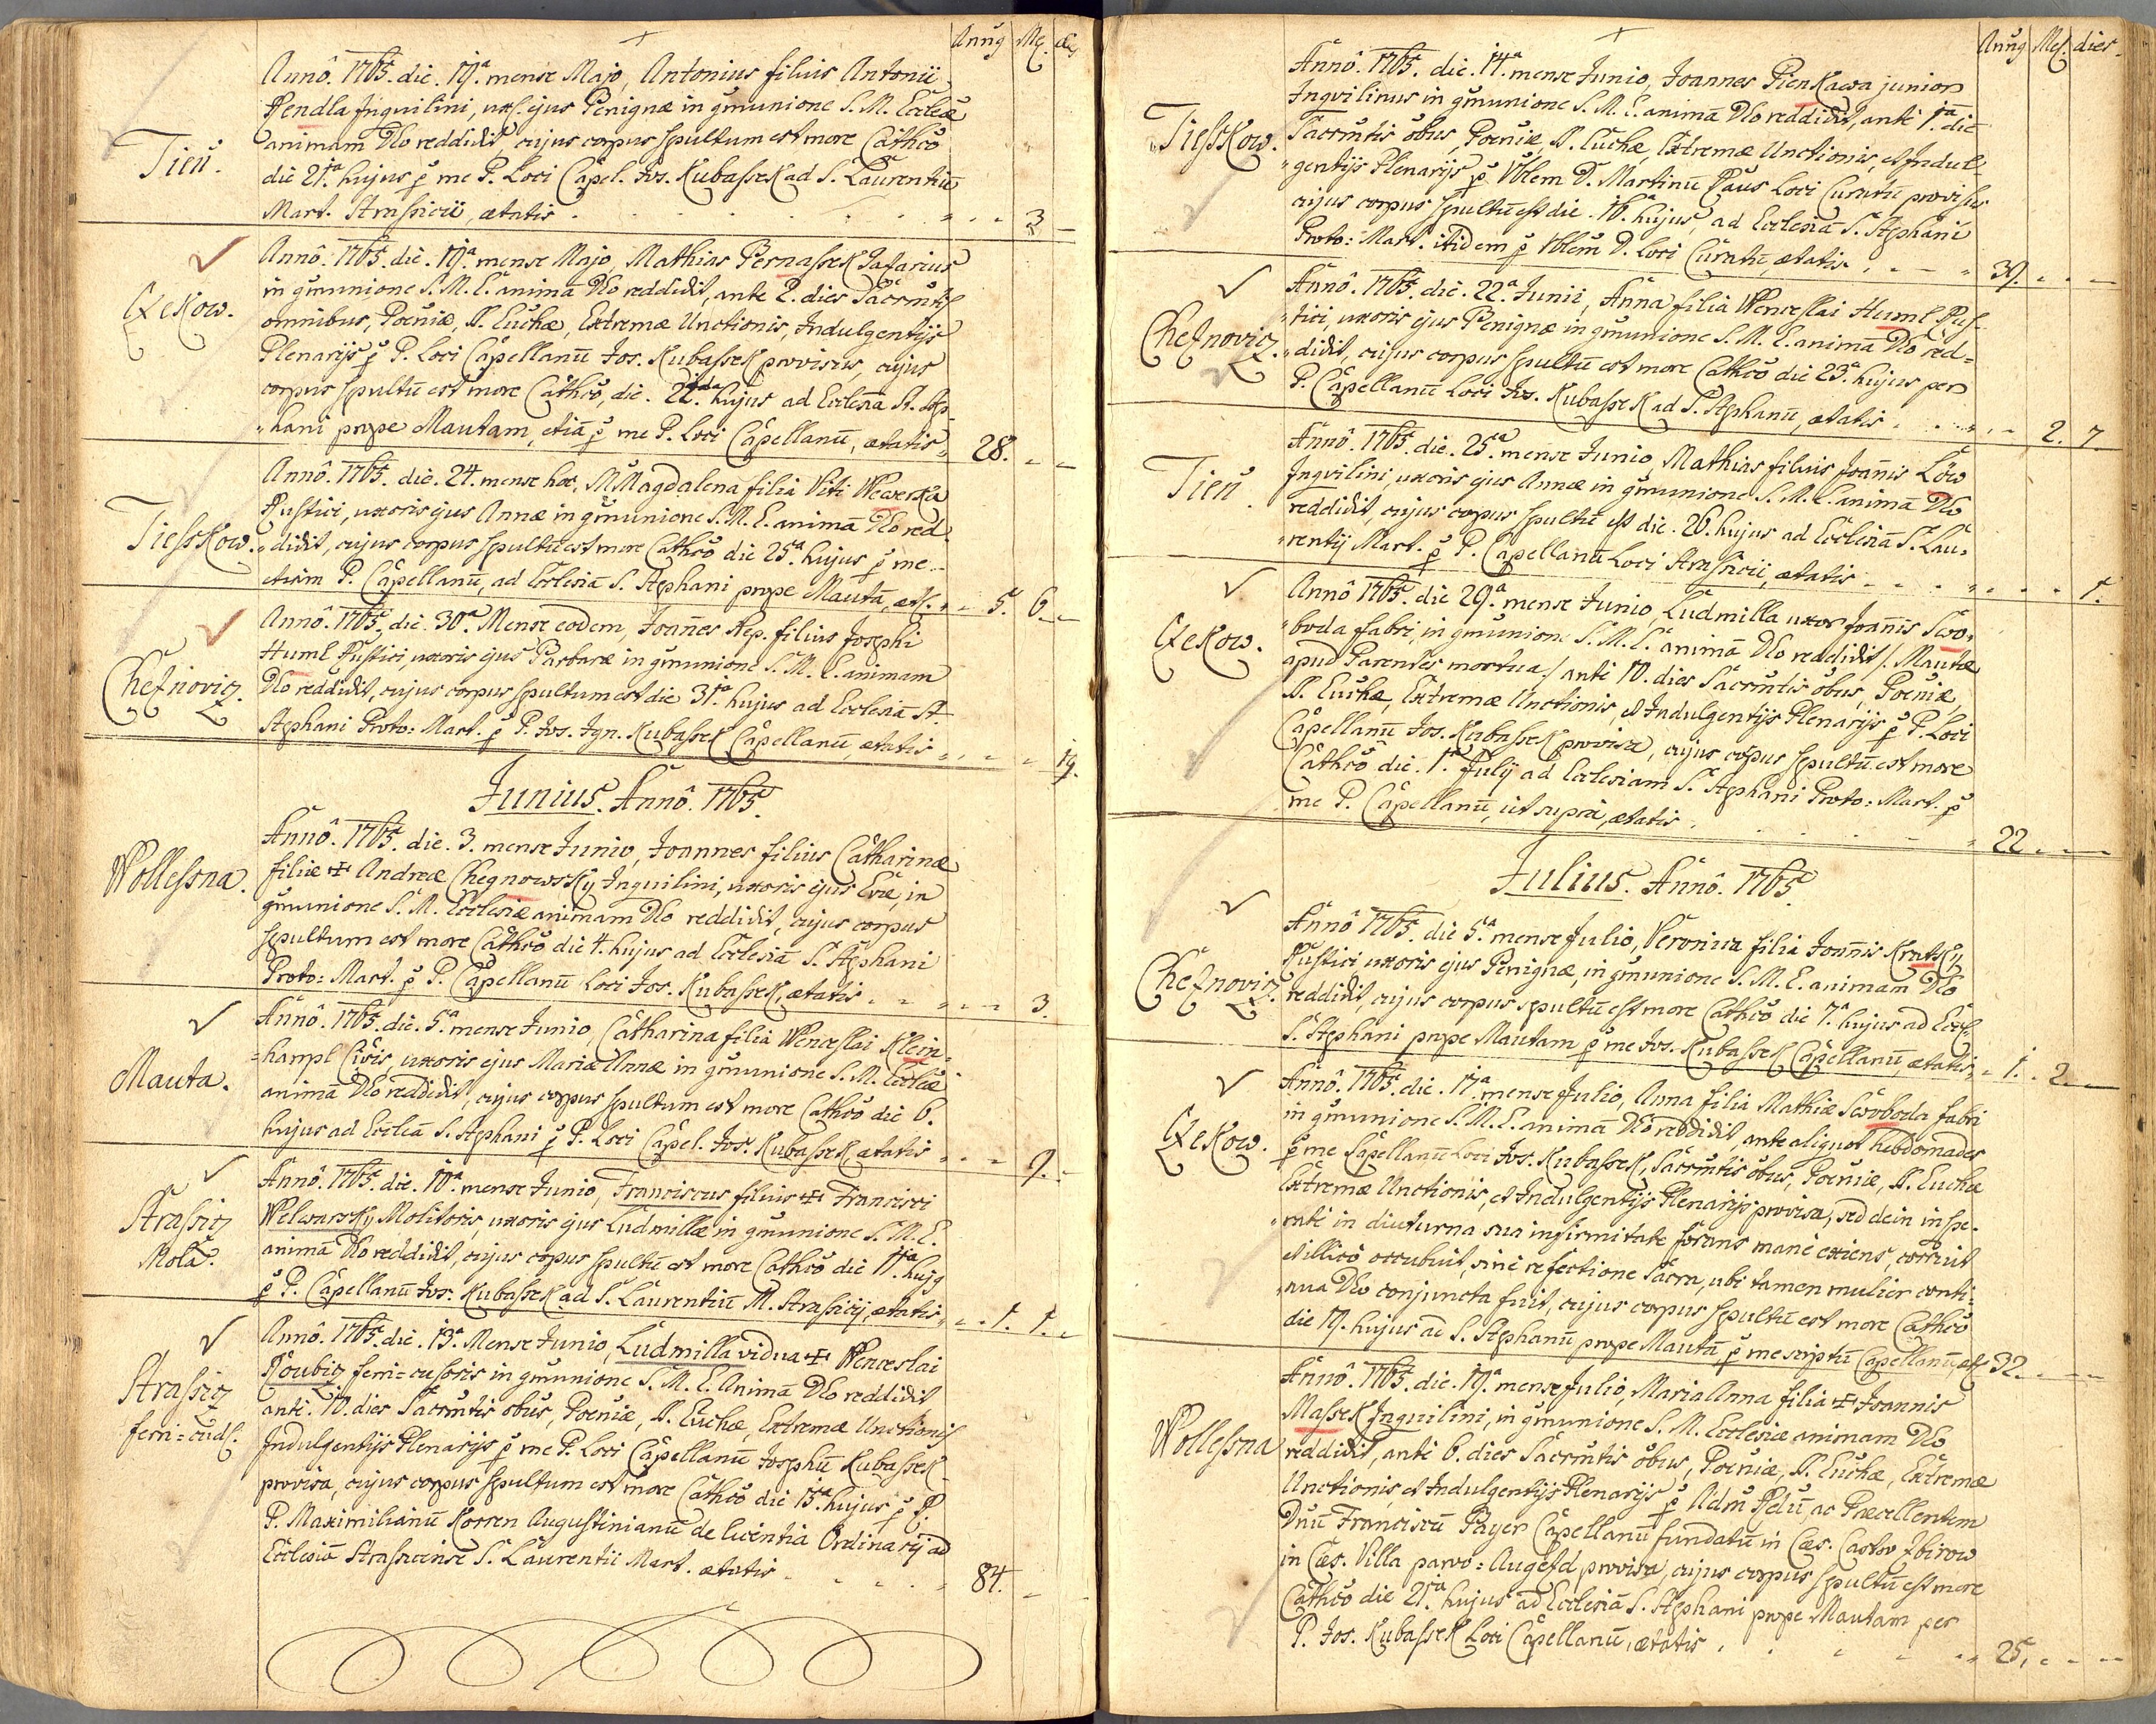 Annus Mes. dies
Tieň.
Annô. 1765. die. 19.ª mense Majo, Antonius filius Antonii
Rendla Inquilini, ux. ejus Benignæ in gmunione S. M. Eccleæ
animam Deo reddidit, cujus corpus spultum est more Cathco
die 21.ª hujus p me P. Loci Capel. Jos. Kubassek ad S. Laurentiū
Mart. Strassicii, ætatis . . . 3 —
Czekow.
Annô. 1765. die. 19.ª mense Majo, Mathias Bernassek Jafarius
in gmunione S. M. E. animā Deo reddidit, ante 2. dies Sacrmtis
omnibus, Pœniæ, S. Euchæ, Extremæ Unctionis, Indulgentijs
Plenarijs p P. Loci Capellanū Jos. Kubassek provisus, cujus
corpus spultū est more Cathco, die. 22.da hujus ad Ecclesiā St. Step-
hani prope Mautam, etiā p me P. Loci Capellanū, ætatis 28. - -
Tiesskow.
Annô. 1765. die. 24. mense hoc, M. Magdalena filia Viti Wewerka
Rustici, uxoris ejus Annæ in gmunione S. M. E. animā Deo red-
didit, cujus corpus spultū est more Cathco die 25.ª hujus p me
etiam P. Capellanū, ad Ecclesiā S. Stephani prope Mautā, æt. - 5. 6 -
Cheznovicz.
Annô. 1765. die. 30.ª Mense eodem, Joannes Nep. filius Josephi
Huml Rustici uxoris ejus Barbaræ in gmunione S. M. E. animam
Deo reddidit, cujus corpus spultum est die 31.ª hujus ad Ecclesiā St.
Stephani Proto: Mart. p P. Jos. Ign. Kubassek Capellanū, ætatis - - - 19.
Junius. Annô. 1765.
Wollessna.
Annô. 1765. die. 3. mense Junio, Joannes filius Catharinæ
filiæ ✝ Andreæ Chegnowsky Inquilini, uxoris ejus Evæ, in
gmunione S. M. Ecclesiæ animam Deo reddidit, cujus corpus
spultum est more Cathco die 4. hujus ad Ecclesiā S. Stephani
Proto: Mart. p P. Capellanū Loci Jos. Kubassek, ætatis - - - 3.
Mauta.
Annô. 1765. die. 5.ª mense Junio, Catharina filia Wenceslai Klein-
hampl Civis, uxoris ejus Mariæ Annæ in gmunione S. M. Eccliæ
animā Deo reddidit, cujus corpus spultum est more Cathco die 6.
hujus ad Eccleā S. Stephani p P. Loci Capel. Jos. Kubassek, ætatis - - 9. -
Strassicz
Mola.
Annô. 1765. die. 10.ª mense Junio, Franciscus filius ✝ Francisci
Welwarsky Molitoris, uxoris ejus Ludmillæ in gmunione S. M. E.
animā Deo reddidit, cujus corpus spultū est more Cathco die 11.ª hujg
p P. Capellanū Jos. Kubassek ad S. Laurentiū M. Strassicij, ætatis - 1. 1. -
Strassicz
ferri=cud.
Annô. 1765. die. 13.ª Mense Junio, Ludmilla vidua ✝ Wenceslai
Raubicz ferri=cusoris in gmunione S. M. E. Animā Deo reddidit
ante. 10. dies Sacrmtis obus, Pœniæ, S. Euchæ, Extremæ Unctionis
Indulgentijs Plenarijs p me P. Loci Capellanū Josephū Kubassek
provisa, cujus corpus spultum est more Cathco die 15.ª hujus p R.
P. Maximilianū Korren Augustinianū de licentia Ordinarij ad
Ecclesiā Strassicense S. Laurentii Mart. ætatis . . . 84. -
Annus Mes. dies
Tiesskow.
Annô. 1765. die. 14.ª mense Junio, Joannes Pienkawa junior
Inqvilinus in gmunione S. M. E. animā Deo reddidit, ante 1.ā die
Sacrmtis obus, Pœniæ, S. Euchæ, Extremæ Unctionis, et Indul-
gentijs Plenarijs p Vblem D. Martinū Paus Loci Curatū provisus
cujus corpus spultū est die. 16.ª hujus, ad Ecclesiā S. Stephani
Proto: Mart. itidem p Vblem D. Loci Curatū, ætatis . - - 39. - -
Cheznovicz.
Annô. 1765. die. 22.ª Junii, Anna filia Wenceslai Huml Rus-
tici, uxoris ejus Benignæ in gmunione S. M. E. animā Deo red-
didit, cujus corpus spultū est more Cathco die 23.ª hujus per
P. Capellanū Loci Jos. Kubassek ad S. Stephanū, ætatis . . . - 2. 7
Tieň.
Annô. 1765. die. 25.ª mense Junio, Mathias filius Joannis Löw
Inqvilini, uxoris ejus Annæ in gmunione S. M. E. animā Deo
reddidit, cujus corpus spultū est die. 26. hujus ad Ecclesiā S. Lau-
rentij Mart. p P. Capellanū Loci Strassicii, ætatis - - - - 1.
Czekow.
Annô 1765. die 29.ª mense Junio, Ludmilla uxor Joannis Swo-
boda fabri, in gmunione S. M. E. animā Deo reddidit /. Mautæ
apud Parentes mortua / ante 10. dies Sacrmtis obus, Pœniæ,
S. Euchæ, Extremæ Unctionis, et Indulgentijs Plenarijs p P. Loci
Capellanū Jos. Kubassek provisa, cujus corpus spultū est more
Cathco die. 1.ª Julij ad Ecclesiam S. Stephani Proto: Mart. p
me P. Capellanū, ut supra, ætatis . . . 22 - -
Julius. Annô. 1765.
Cheznovicz.
Annô 1765. die 5.ª mense Julio, Veronica filia Joannis Kratky
Rustici uxoris ejus Benignæ, in gmunione S. M. E. animam Deo
reddidit, cujus corpus spultū est more Cathco die 7.ª hujus ad Eccl.
S. Stephani prope Mautam p me Jos. Kubassek Capellanū, ætatis - 1. 2. -
Czekow.
Annô. 1765. die. 17.ª mense Julio, Anna filia Mathiæ Swoboda fabri
in gmunione S. M. E. animā Deo reddidit, ante aliquot hebdomades
p me Capellanū Loci Jos. Kubassek, Sacrmtis obus, Pœniæ, S. Euchæ
Extremæ Unctionis, et Indulgentijs Plenarijs provisa, sed dein inspe-
rate in diuturna sua infirmitate forans mane exiens, corruit
et illico occubuit, sine refectione Sacra, ubi tamen mulier conti-
nua Deo conjuncta fuit, cujus corpus spultū est more Cathco
die 19. hujus ad S. Stephanū prope Mautā p me scriptū Capellanū, æt. 32. - -
Wollessna
Annô. 1765. die. 19.ª mense Julio, Maria Anna filia ✝ Joannis
Massek Inquilini, in gmunione S. M. Ecclesiæ animam Deo
reddidit, ante 6. dies Sacrmtis obus, Pœniæ, S. Euchæ, Extremæ
Unctionis, et Indulgentijs Plenarijs p Admū Rdū, ac Præcellentem
Dnū Franciscū Payer Capellanū fundatū in Cæs. Castro Zbirow
in Cæs. Villa parvo=Augezd provisa, cujus corpus spultū est more
Cathco die 21.ª hujus ad Ecclesiā S. Stephani prope Mautam per
P. Jos. Kubassek Loci Capellanū, ætatis . . . 25, - -